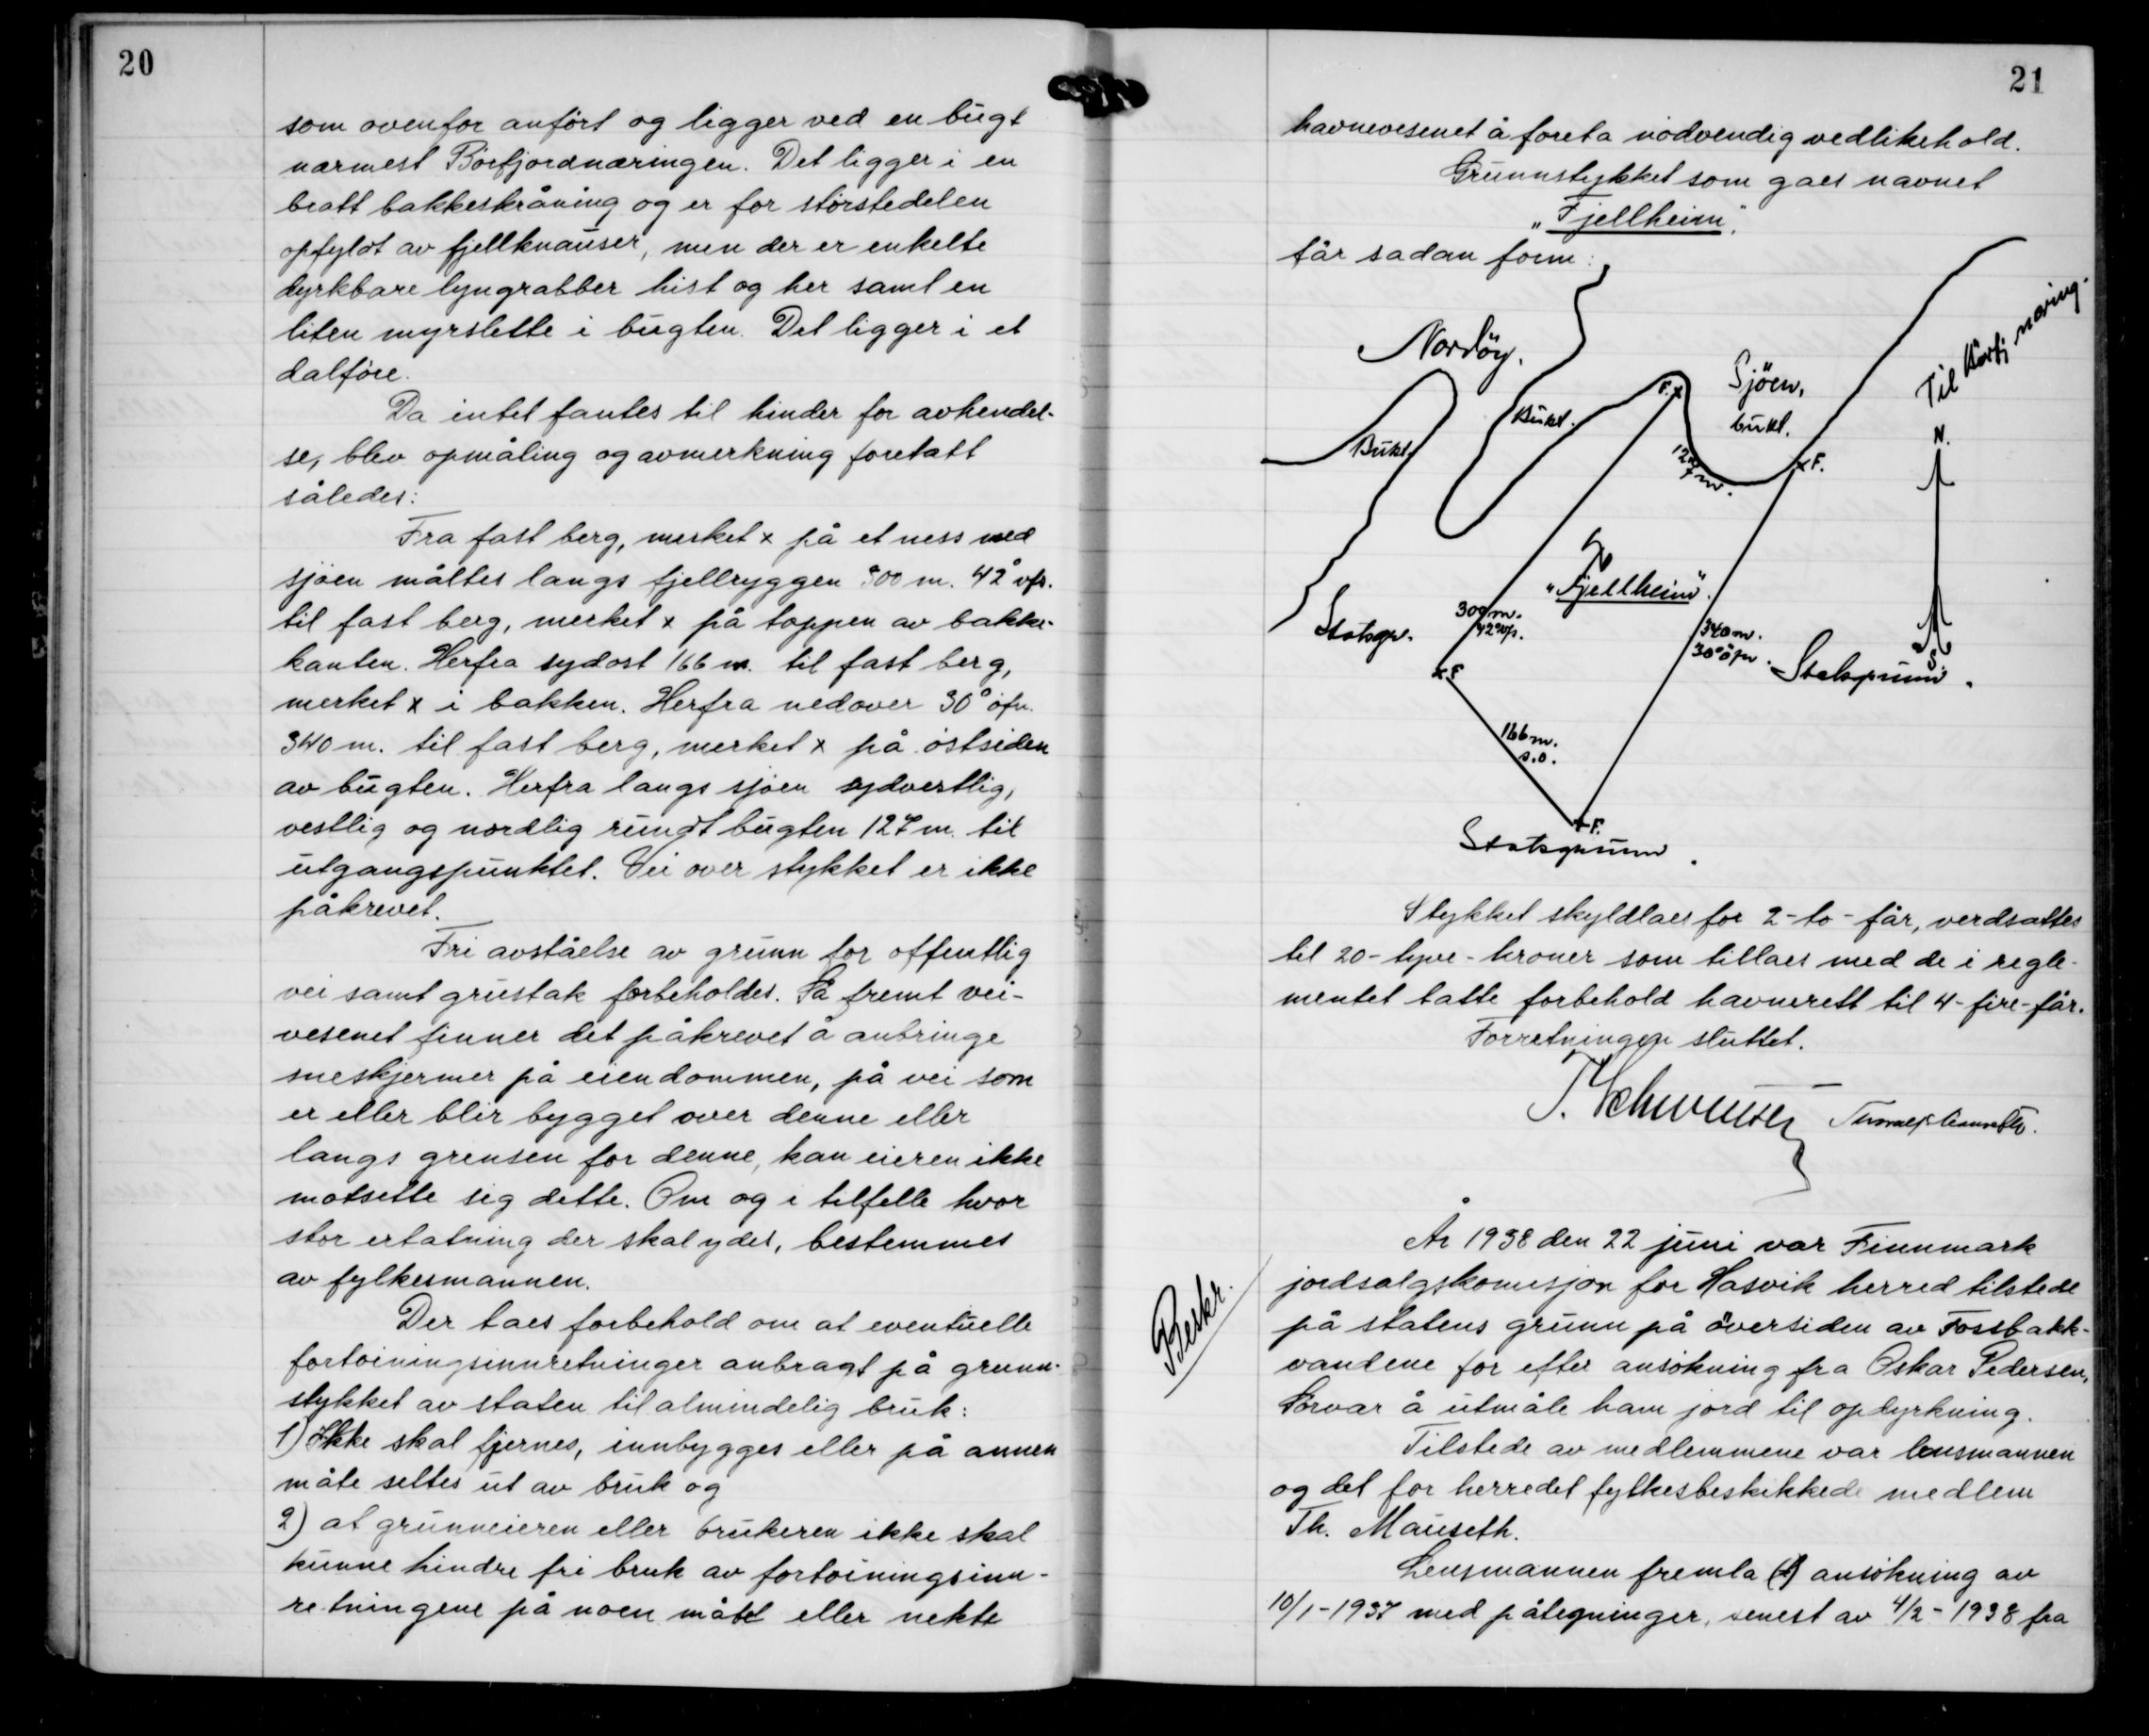 20
som ovenfor anført og ligger ved en bugt
nærmest Börfjordnæringen. Det ligger i en
bratt bakkeskråning og er for störstedelen
opfyldt av fjellknauser, men der er enkelte
dyrkbare lyngrabber hist og her samt en
liten myrslette i bugten. Det ligger i et
dalföre.
Da intet fantes til hinder for avhendel-
se, blev opmåling og avmerkning foretatt
således:
Fra fast berg, merket x på et ness ved
sjöen måltes langs fjellryggen 300 m. 42° vfs.
til fast berg, merket x på toppen av bakke-
kanten. Herfra sydost 166 m. til fast berg,
merket x i bakken. Herfra nedover 30° öfn.
340 m. til fast berg, merket x på östsiden
av bugten. Herfra langs sjöen sydvestlig,
vestlig og nordlig rundt bugten 127 m. til
utgangspunktet. Vei over stykket er ikke
påkrevet.
Fri avståelse av grunn for offentlig
vei samt grustak forbeholdes. Så fremt vei-
vesenet finner det påkrevet å anbringe
sneskjermer på eiendommen, på vei som
er eller blir bygget over denne eller
langs grensen for denne, kan eieren ikke
motsette sig dette. Om og i tilfelle hvor
stor erstatning der skal ydes, bestemmes
av fylkesmannen.
Der taes forbehold om at eventuelle
fortöiningsinnretninger anbragt på grunn-
stykket av staten til almindelig bruk:
1) Ikke skal fjernes, innbygges eller på annen
måte settes ut av bruk og
2) at grunneieren eller brukeren ikke skal
kunne hindre fri bruk av fortöiningsinn-
retningene på noen måte eller nekte
21
havnevesenet å foreta nödvendig vedlikehold.
Grunnstykket som gaes navnet
"Fjellheim",
får sadan form:
Nordöy.
Sjöen,
bukt.
Til Börfj næring.
Bukt.
Bukt.
F. x
127 m.
x F.
N.
"Fjellheim".
Statsgr.
300 m.
42° vfs.
340 m.
30° öfn.
Statsgrunn.
S.
x F
166 m.
s.o.
x F.
Statsgrunn.
Stykket skyldlaes for 2 - to - får, verdsattes
til 20 - tyve - kroner som tillaes med de i regle-
mentet tatte forbehold havnerett til 4 - fire - får.
Forretningen sluttet.
Beskr.
År 1938 den 22 juni var Finnmark
jordsalgskomisjon for Hasvik herred tilstede
på statens grunn på översiden av Fossbakk-
vandene for efter ansökning fra Oskar Pedersen,
Sörvær å utmåle ham jord til opdyrkning.
Tilstede av medlemmene var lensmannen
og det for herredet fylkesbeskikkede medlem
Th. Mauseth.
Lensmannen fremla (1) ansökning av
10/1-1937 med påtegninger, senest av 4/2 - 1938 fra